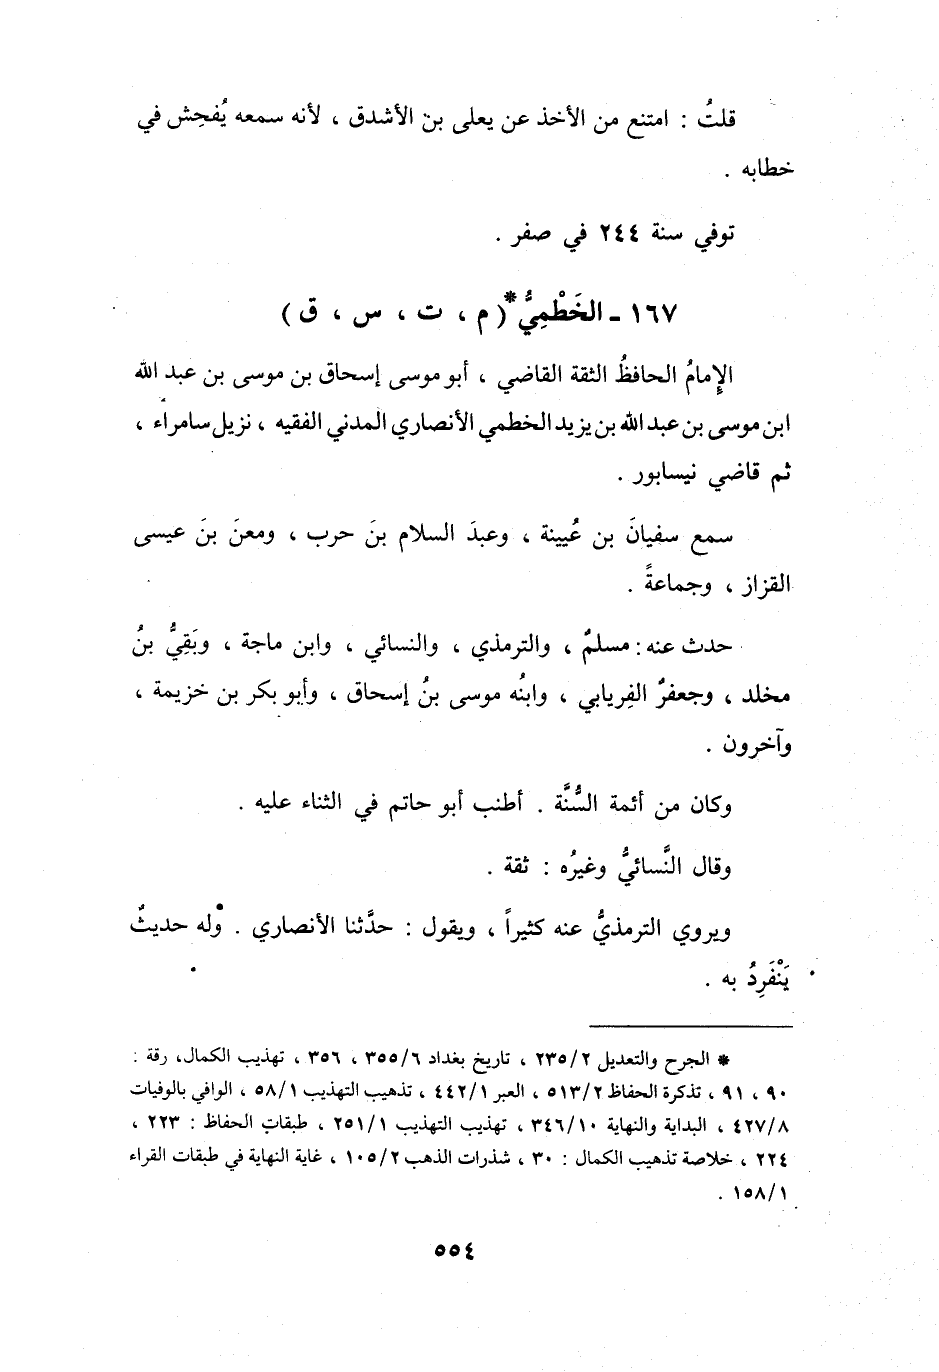 قلتُ : امتنع من الأخذ عن يعلى بن الأشدق ، لأنه سمعه يُفحِش في
خطابه .
توفي سنة ٢٤٤ في صفر .
١٦٧ - الخَطْمِيُّ * ( م ، ت ، س ، ق )
الإِمامُ الحافظُ الثقة القاضي ، أبو موسى إسحاق بن موسى بن عبد الله
ابن موسى بن عبد الله بن يزيد الخطمي الأنصاري المدني الفقيه ، نزيل سامراء ،
ثم قاضي نيسابور .
سمع سفيانَ بن عُيينة ، وعبدَ السلام بنَ حرب ، ومعنَ بنَ عيسى
القزاز ، وجماعةً .
حدث عنه : مسلمٌ ، والترمذي ، والنسائي ، وابن ماجة ، وبَقِيُّ بنُ
مخلد ، وجعفرٌ الفِريابي ، وابنُه موسى بنُ إسحاق ، وأبو بكر بن خزيمة ،
وآخرون .
وكان من أئمة السُّنَّة . أطنب أبو حاتم في الثناء عليه .
وقال النَّسائيُّ وغيرُه : ثقة .
ويروي الترمذيُّ عنه كثيراً ، ويقول : حدَّثنا الأنصاري . وله حديثٌ
يَنْفَرِدُ به .
* الجرح والتعديل ٢/ ٢٣٥ ، تاريخ بغداد ٦/ ٣٥٥ ، ٣٥٦ ، تهذيب الكمال، رقة :
٩٠ ، ٩١ ، تذكرة الحفاظ ٢/ ٥١٣ ، العبر ١/ ٤٤٢ ، تذهيب التهذيب ١/ ٥٨ ، الوافي بالوفيات
٨/ ٤٢٧ ، البداية والنهاية ١٠/ ٣٤٦ ، تهذيب التهذيب ١/ ٢٥١ ، طبقات الحفاظ : ٢٢٣ ،
٢٢٤ ، خلاصة تذهيب الكمال : ٣٠ ، شذرات الذهب ٢/ ١٠٥ ، غاية النهاية في طبقات القراء
١/ ١٥٨ .
٥٥٤